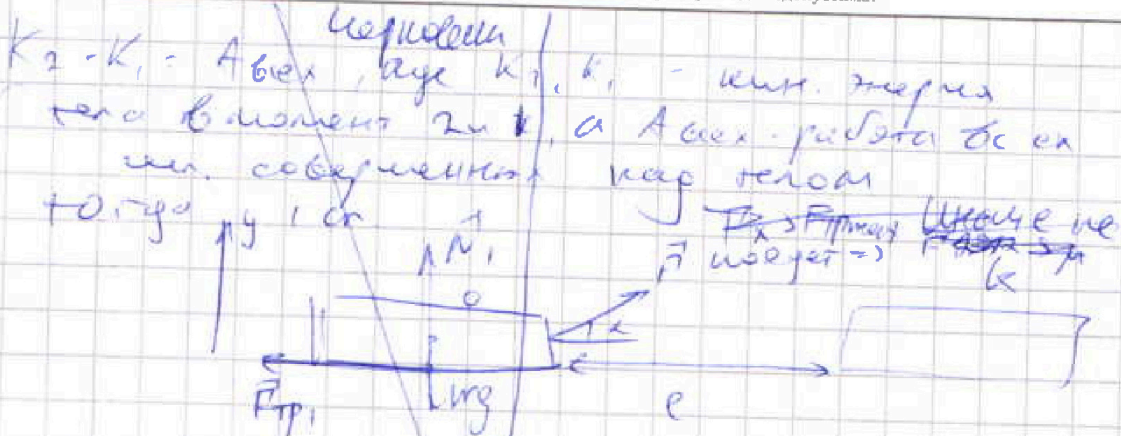 Черновик
K₂ - K₁ = Aвсех, где K₂, K₁ - кин. энергия
тела в момент 2 и 1, а Aвсех - работа всех
сил. совершенная над телом
тогда y 1 сл N₁ Fx > Fтр Иначе не
F поедет =>
K
α
mg
Fтр₁ l